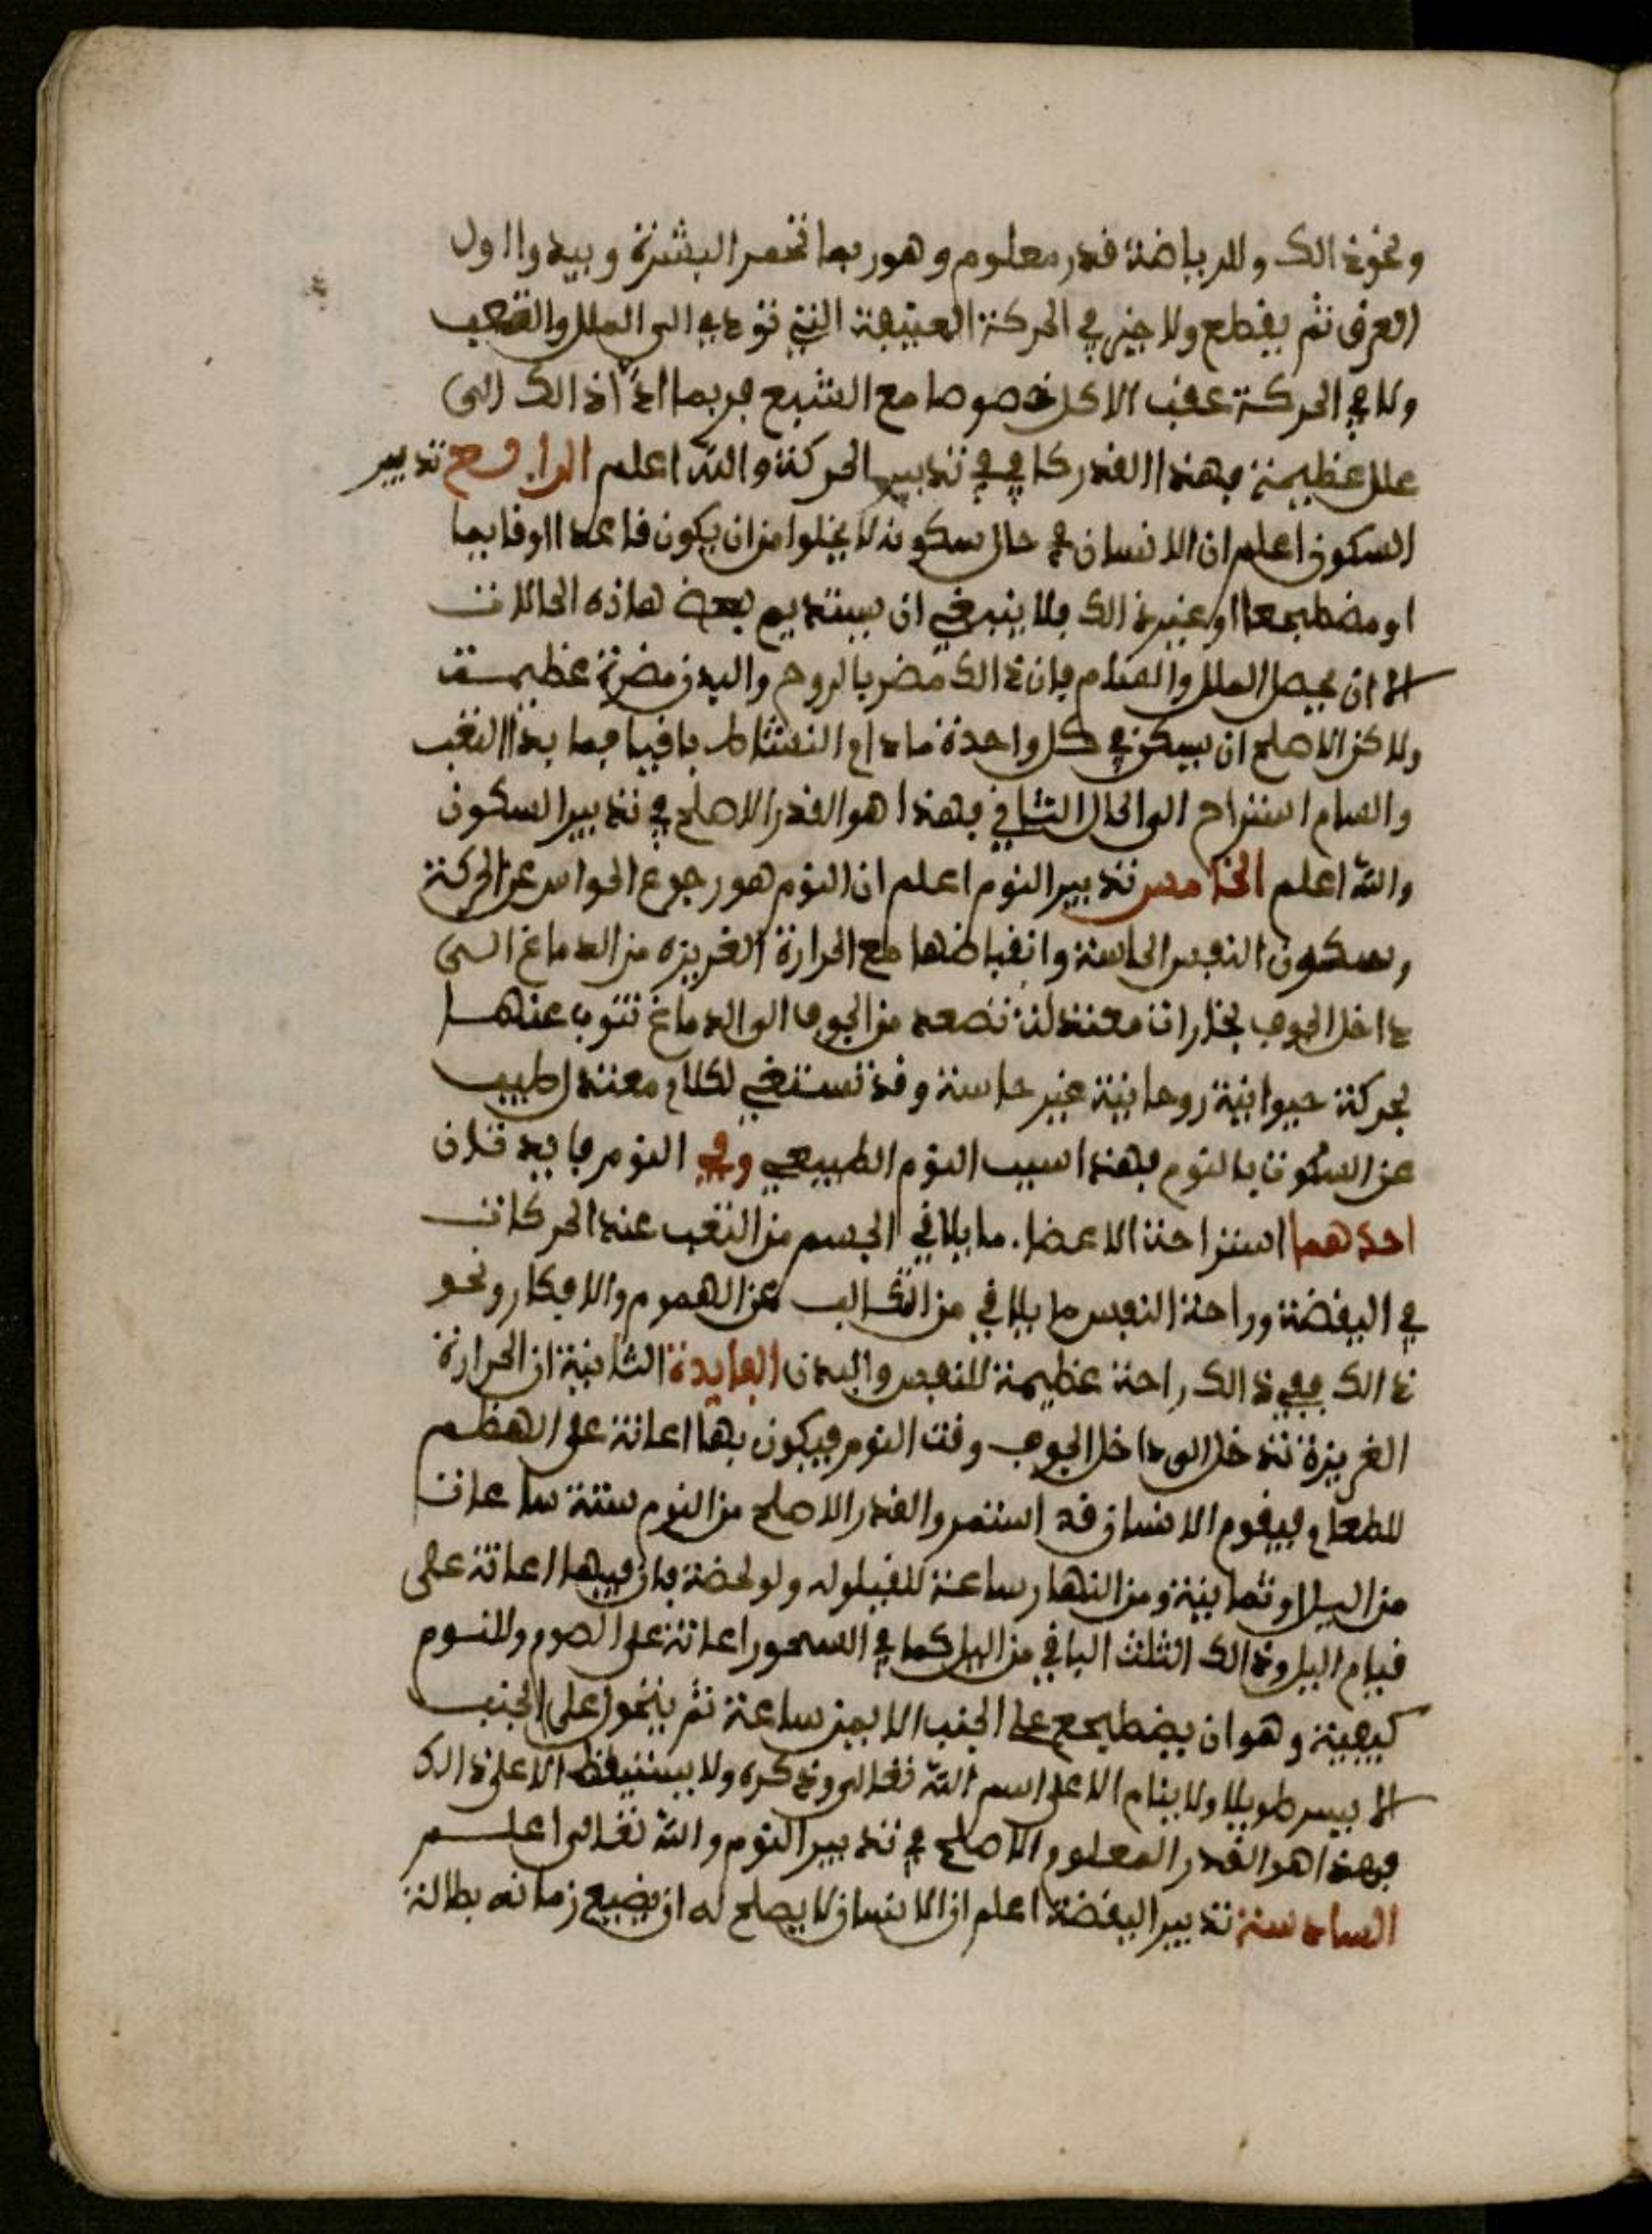 ونحو ذالك وللرياضة قدر معلوم وهو ربما تحمر البشرة ويبدوا اول
العرق ثم يقطع ولا خير في الحركة العنيفة التي تودي الى الملل والتعب
ولا في الحركة عقب الاكل خصوصا مع الشبع فربما ادّا ذالك الى
علل عظيمة فهذا القدر كافي في تدبير الحركة والله اعلم الرابع تدبير
السكون اعلم ان الانسان في حال سكونه لا يخلوا من ان يكون قاعدا او قايما
او مضطجعا او غير ذالك فلا ينبغي ان يستديم بعض هاذه الحالات
الا ان يحصل الملل والسئام فان ذالك مضر بالروح والبدن مضرة عظيمة
ولاكن الاصلح ان يسكن في كل واحدة مادام النشاط باقيا فما بدا التعب
والسام استراح الى الحال الثاني فهذا هو القدر الاصلح في تدبير السكون
والله اعلم الخامس تدبير النوم اعلم ان النوم هو رجوع الحواس عن الحركة
وسكون النفس الحاسة وانقباضها مع الحرارة الغريزه من الدماغ الى
داخل الجوف بخارات معتدلة تصعد من الجوف الى الدماغ تنوب عنها
بحركة حيوانية روحانية غير حاسة وقد تستغي لكلام معتدل طيب
عن السكون بالنوم فهذا سبب النوم الطبيعي وفي النوم فايدتان
احدهما استراحة الاعضا. ما يلاقي الجسم من التعب عند الحركات
في اليقضة وراحة النفس ما يلاقي من التكالب عن الهموم والافكار ونحو
ذالك ففي ذالك راحة عظيمة للنفس والبدن الفايدة الثانية ان الحرارة
الغريزة تدخل الى داخل الجوف وقت النوم فيكون بها اعانة على الهظم
للطعام فيقوم الانسان قد استمر والقدر الاصلح من النوم ستة ساعات
من اليل او ثمانية ومن النهار ساعة للقيلوله ولو لحضة فان فيها اعانة على
قيام اليل وذالك الثلث الباقي من اليل كما في السحور اعانة على الصوم وللنوم
كيفية وهو ان يضطجع على الجنب الايمن ساعة ثم يتحول على الجنب
الايسر طويلا ولا ينام الا على اسم الله تعالى وذكره ولا يستيقظ الا على ذالك
فهذا هو القدر المعلوم الاصلح في تدبير النوم والله تعالى اعلم
السادسة تدبير اليقضة اعلم ان الانسان لا يصلح له ان يضيع زمانه بطالة